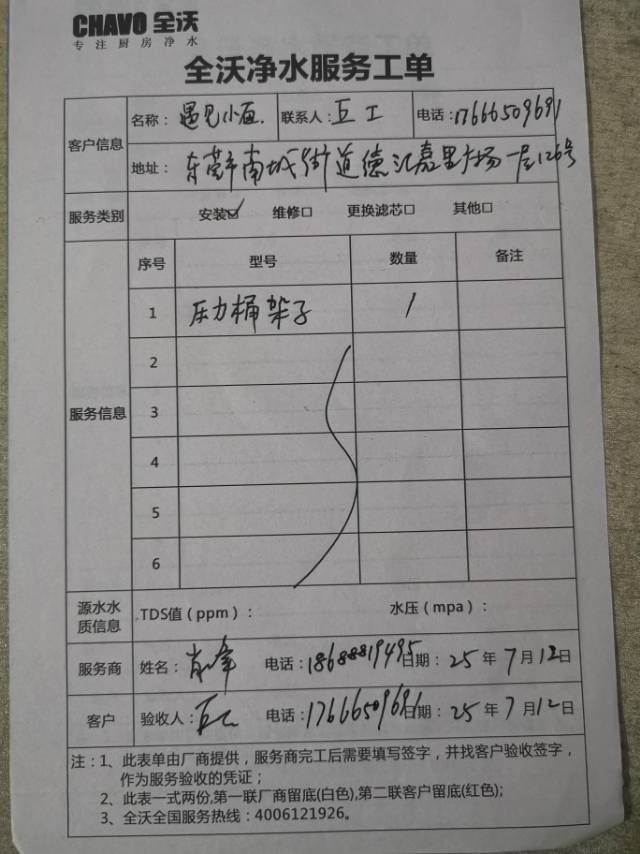 CHAVO 全沃
专注厨房净水
全沃净水服务工单
客户信息 名称：遇见小面. 联系人：巨工 电话：17666509691
地址：东莞市南城街道德汇嘉里广场一层126号
服务类别 安装☑ 维修□ 更换滤芯□ 其他□
服务信息 序号 型号 数量 备注
1 压力桶架子 1
2
3
4
5
6
源水水质信息 TDS值（ppm）： 水压（mpa）：
服务商 姓名： 电话：18688819495 日期：25年7月12日
客户 验收人：巨工 电话：17666509691 日期：25年7月12日
注：1、此表单由厂商提供，服务商完工后需要填写签字，并找客户验收签字，
作为服务验收的凭证；
2、此表一式两份,第一联厂商留底(白色),第二联客户留底(红色);
3、全沃全国服务热线：4006121926。